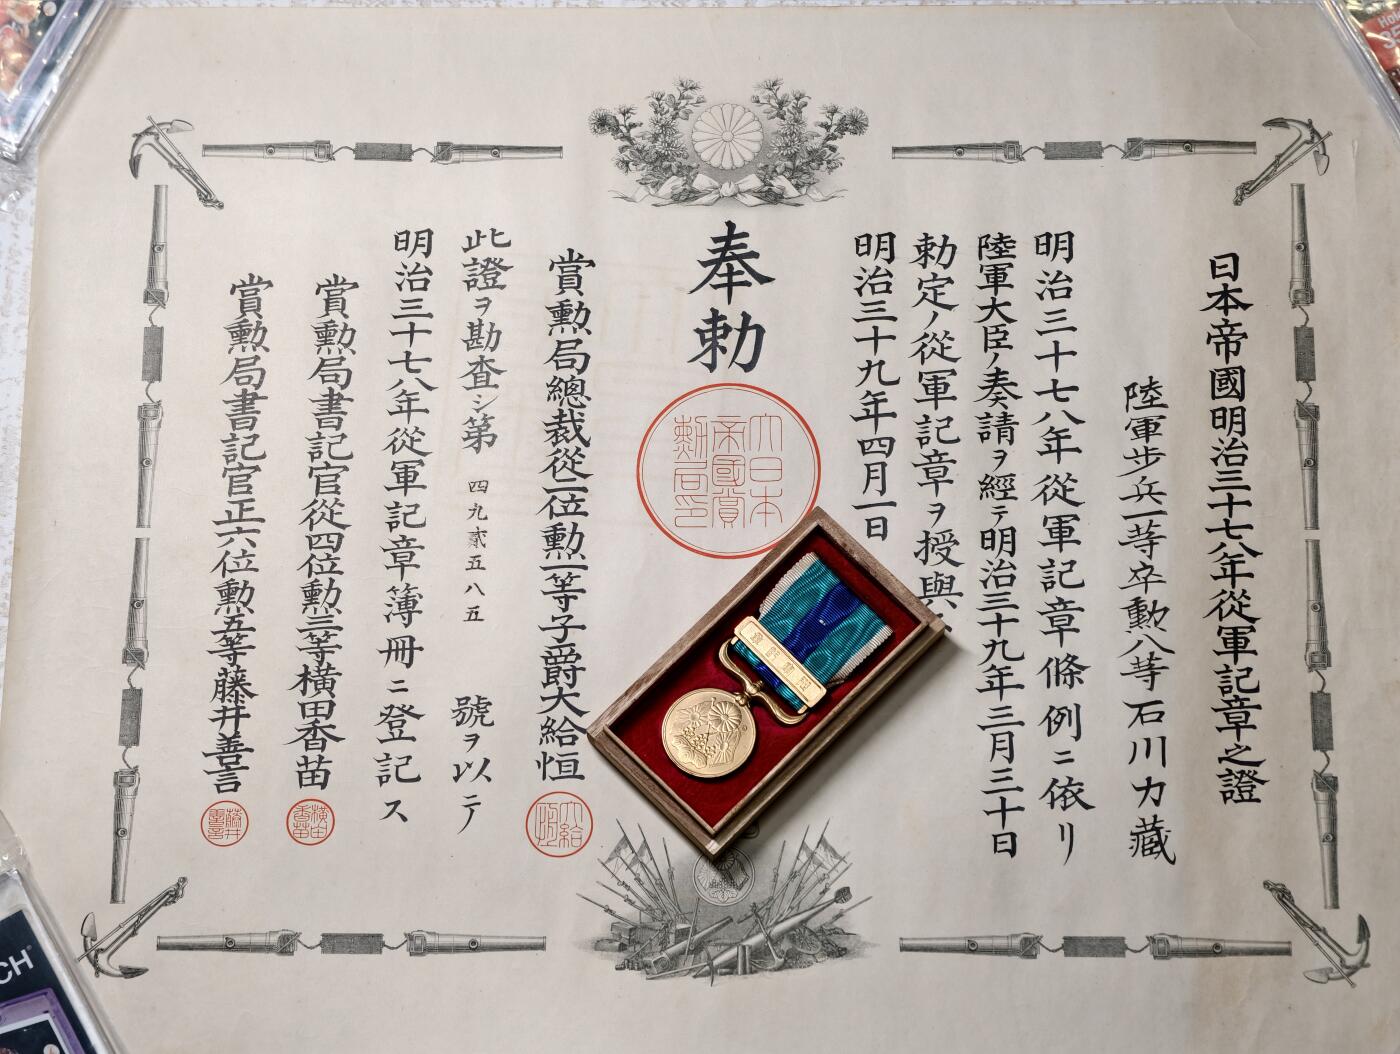 日本帝國明治三十七八年從軍記章之證
陸軍歩兵一等卒勲八等石川力藏
明治三十七八年從軍記章條例ニ依リ
陸軍大臣ノ奏請ヲ經テ明治三十九年三月三十日
勅定ノ從軍記章ヲ授與
明治三十九年四月一日
奉勅
大日本
帝國賞
勲局印
賞勲局總裁從二位勲一等子爵大給恒
大給
此證ヲ勘査シ第四九貳五八五號ヲ以テ
明治三十七八年從軍記章簿冊ニ登記ス
賞勲局書記官從四位勲三等横田香苗
横田
香苗
賞勲局書記官正六位勲五等藤井善言
藤井
善言
CH